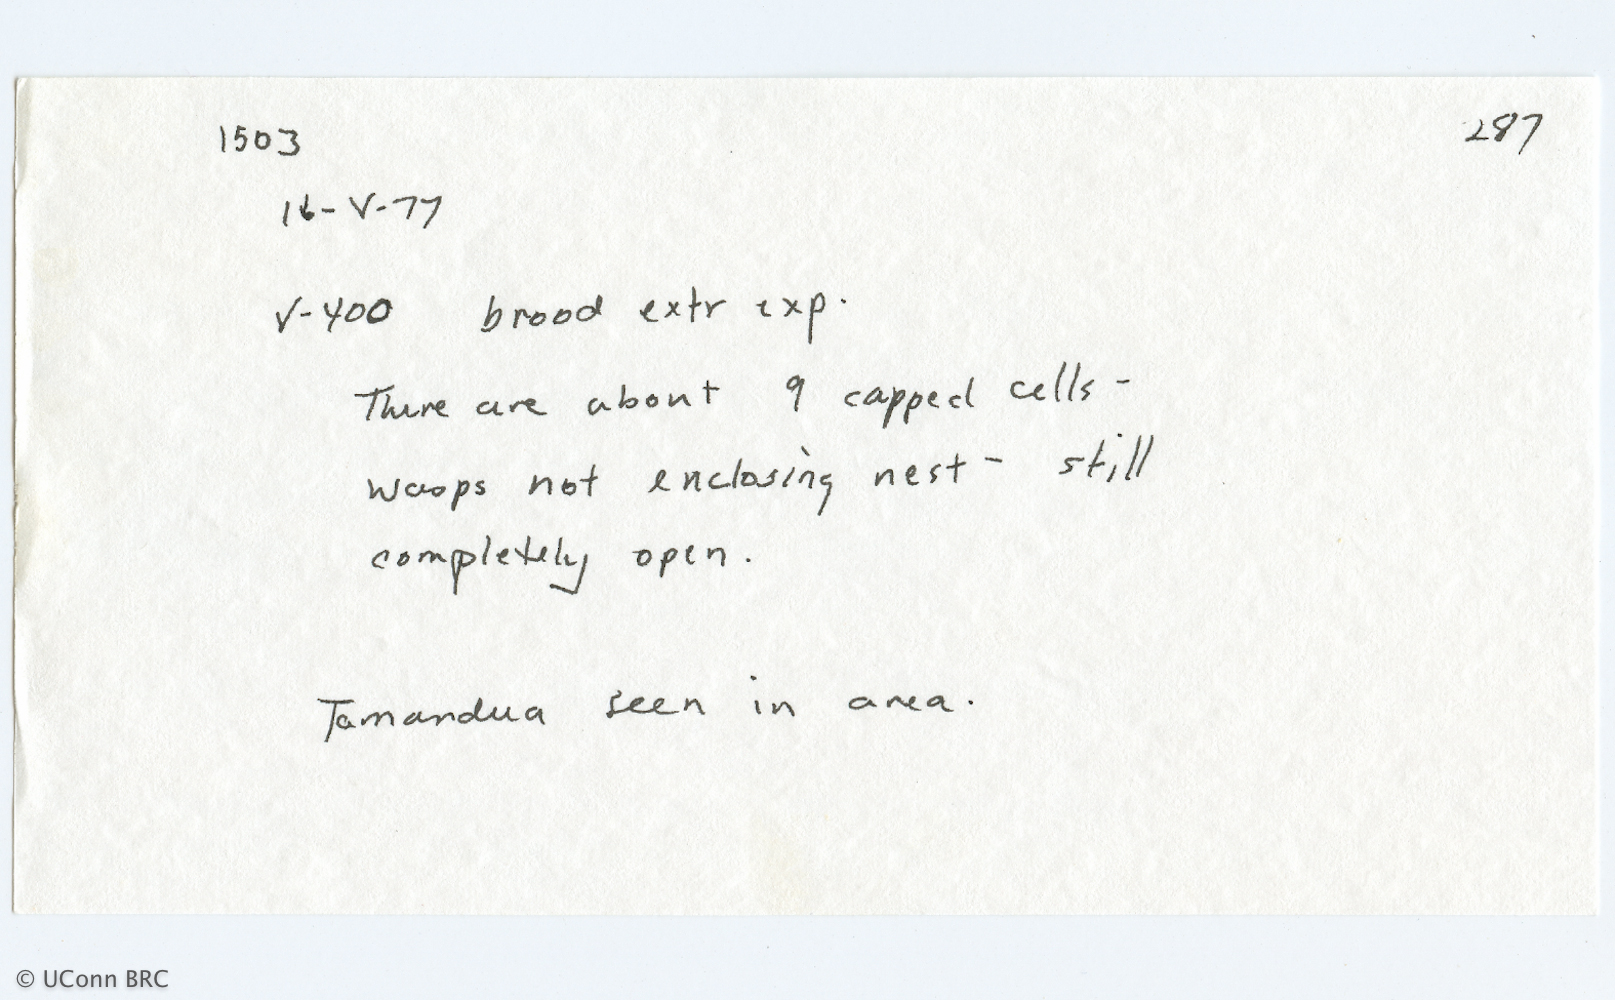 1503 287
16-V-77
V-400 brood extr exp.
There are about 9 capped cells -
wasps not enclosing nest - still
completely open.
Tamandua seen in area.
© UConn BRC